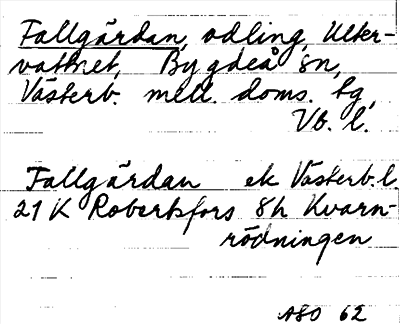 Fallgärdan, odling, Utter-
vattnet, Bygdeå sn,
Västerb. mell. doms. tg,
Vb. l.
Fallgärdan ek Västerb. l.
21 K Robertsfors 8h Kvarn-
rödningen
ASO 62